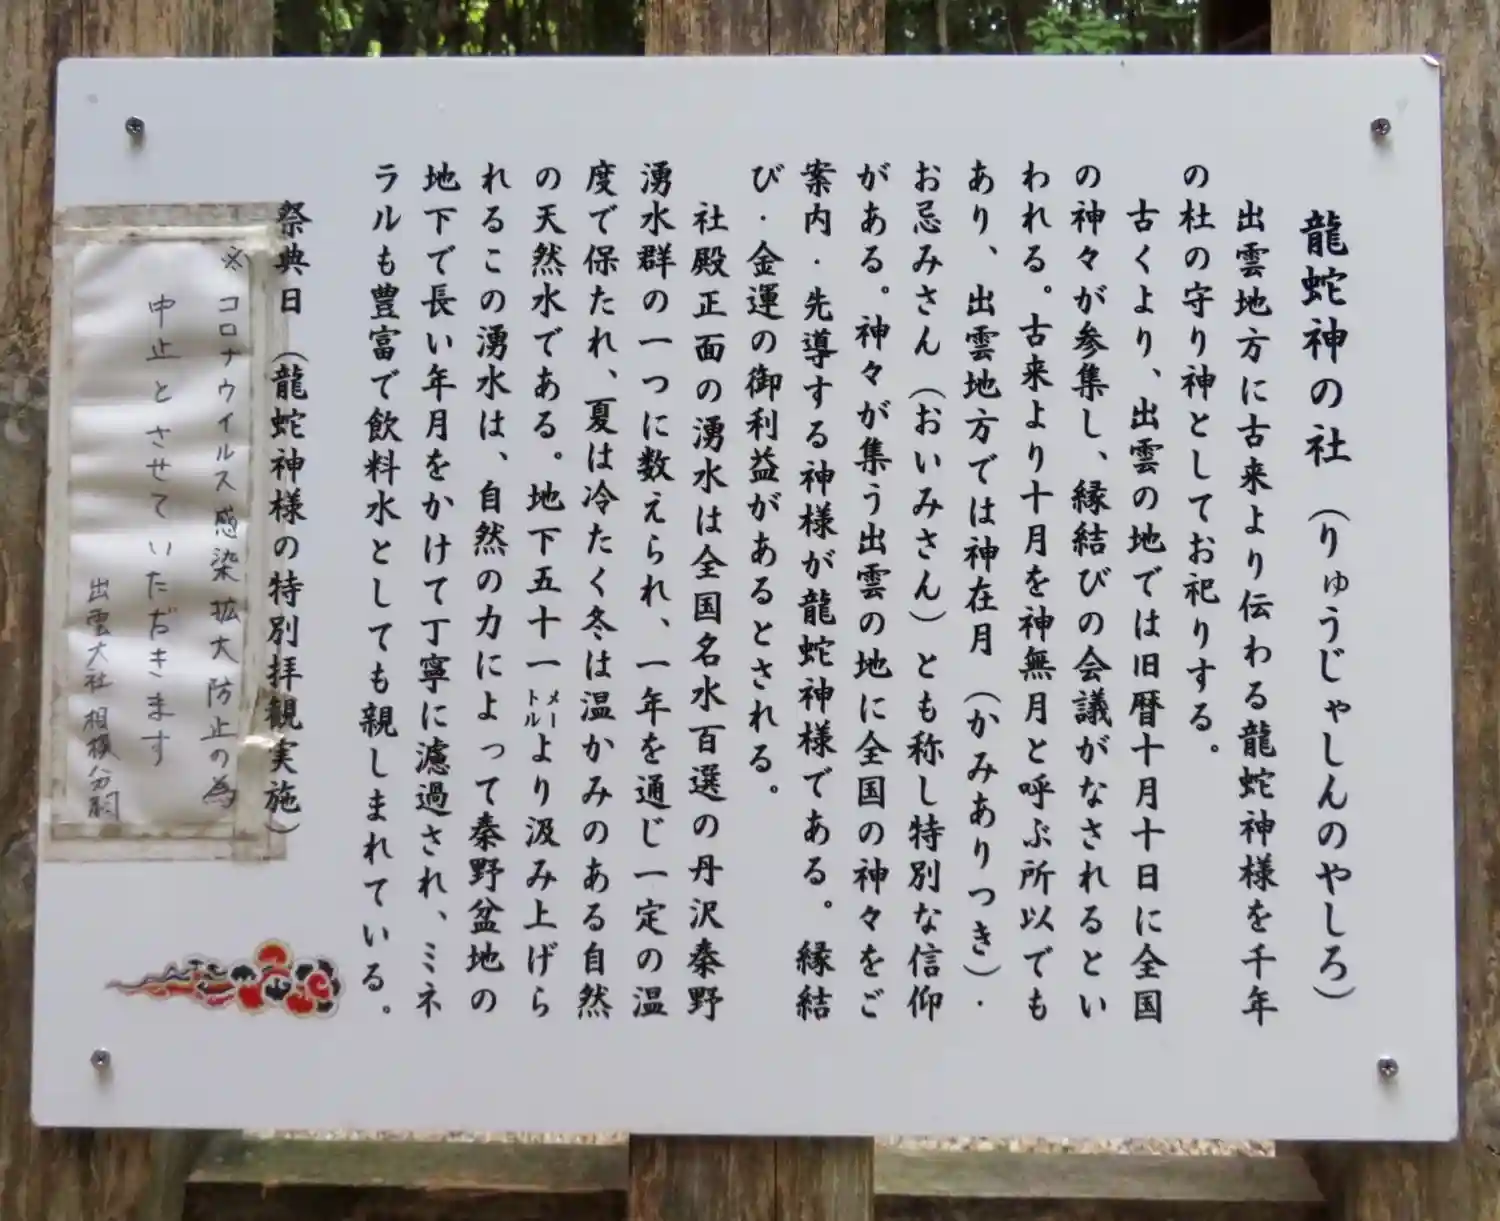 龍蛇神の社（りゅうじゃしんのやしろ）
出雲地方に古来より伝わる龍蛇神様を千年
の杜の守り神としてお祀りする。
古くより、出雲の地では旧暦十月十日に全国
の神々が参集し、縁結びの会議がなされるとい
われる。古来より十月を神無月と呼ぶ所以でも
あり、出雲地方では神在月（かみありつき）・
お忌みさん（おいみさん）とも称し特別な信仰
がある。神々が集う出雲の地に全国の神々をご
案内・先導する神様が龍蛇神様である。縁結
び・金運の御利益があるとされる。
社殿正面の湧水は全国名水百選の丹沢秦野
湧水群の一つに数えられ、一年を通じ一定の温
度で保たれ、夏は冷たく冬は温かみのある自然
の天然水である。地下五十一メートルより汲み上げら
れるこの湧水は、自然の力によって秦野盆地の
地下で長い年月をかけて丁寧に濾過され、ミネ
ラルも豊富で飲料水としても親しまれている。
祭典日（龍蛇神様の特別拝観実施）
※コロナウイルス感染拡大防止の為
中止とさせていただきます
出雲大社相模分祠